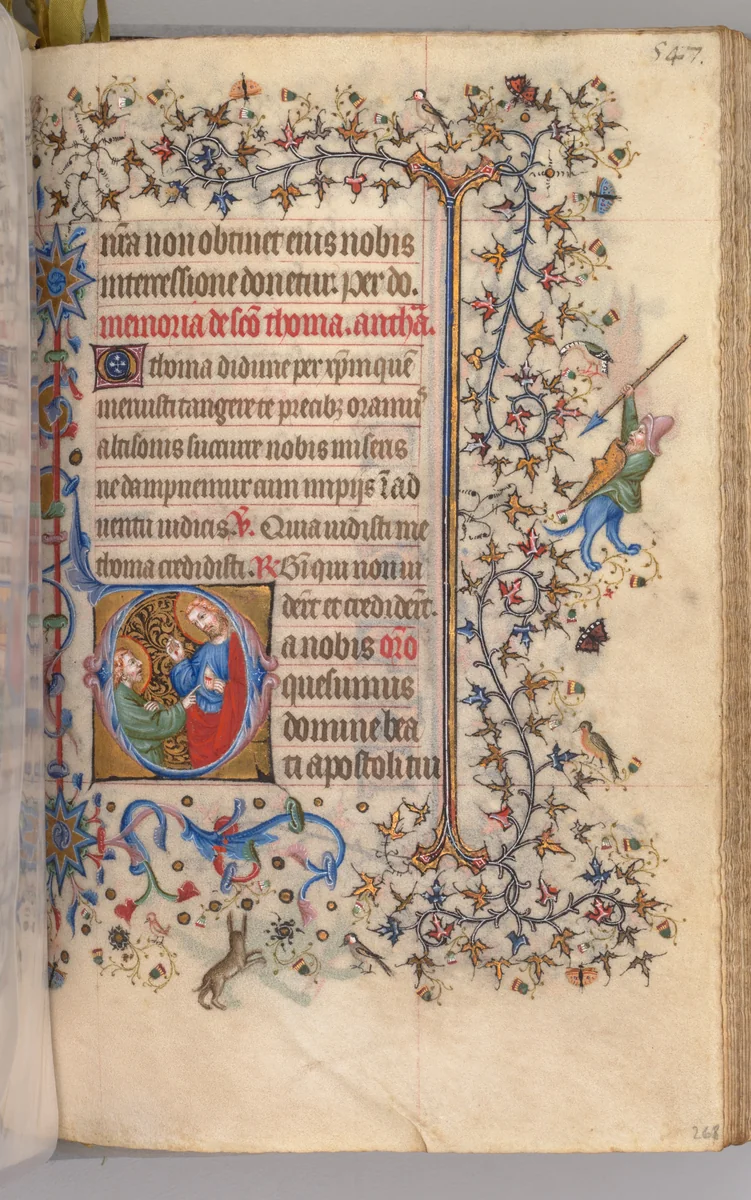 547.
nr̄a non obtinet eius nobis
intercessione donetur. per do.
memoria de sc̄o thoma. anth̄a.
O thoma didime per xp̄m quē
meruisti tangere te precibꝫ oramus
altisonis succurre nobis miseris
ne dampnemur cum impijs ī ad
uentu iudicis. V̄. Quia uidisti me
thoma credidisti. R̄ Bn̄i qui non ui
derūt et crediderūt.
a nobis or̄o
quesumus
domine bea
ti apostoli tui
268